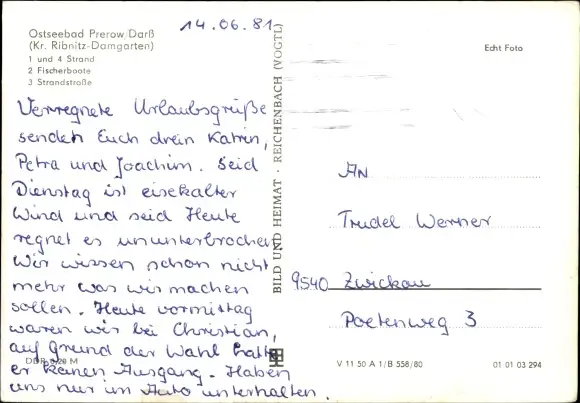 14.06.81
Ostseebad Prerow/Darß
(Kr. Ribnitz-Damgarten)
1 und 4 Strand
2 Fischerboote
3 Strandstraße
Verregnete Urlaubsgrüße
senden Euch drein Katrin,
Petra und Joachim. Seid
Dienstag ist eisekalter
Wind und seid Heute
regnet es ununterbrochen
Wir wissen schon nicht
mehr was wir machen
sollen. Heute vormittag
waren wir bei Christian,
auf Grund der Wahl hatte
er keinen Ausgang. Haben
uns nur im Auto unterhalten.
BILD UND HEIMAT · REICHENBACH (VOGTL)
Echt Foto
AN
Trudel Werner
9540 Zwickau
Poetenweg 3
V 11 50 A 1/B 558/80
01 01 03 294